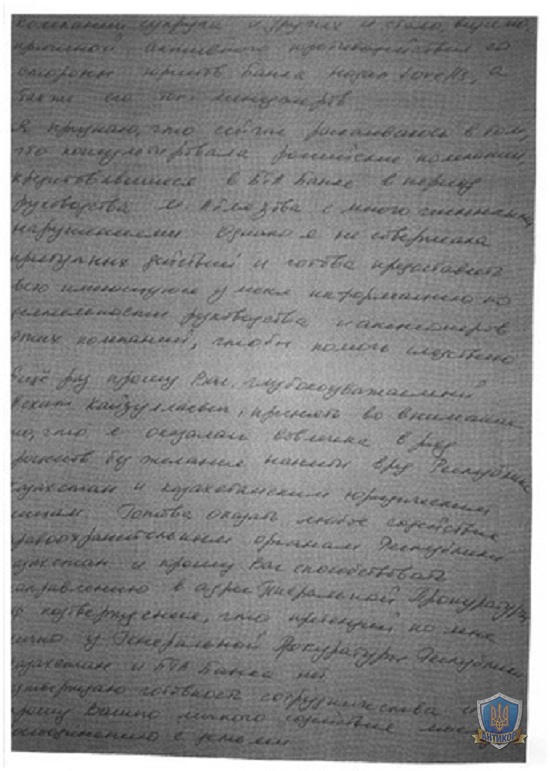 компаний супруга и других и стало, видимо,
причиной активного противодействия со
стороны юристов Банка назад Lovells, а
также его топ менеджеров
Я признаю, что сейчас раскаиваюсь в том,
что консультировала российские компании
кредитовавшиеся в БТА Банке в период
руководства М Аблязова с многочисленными
нарушениями Однако я не совершала
преступных действий и готова предоставить
всю имеющуюся у меня информацию по
деятельности руководства и акционеров
этих компаний, чтобы помочь следствию
Ещё раз прошу Вас, глубокоуважаемый
Кайзуллаевич, принять во внимание
то, что я оказалась вовлечена в ряд
проектов без желания нанести вред Республике
Казахстан и казахстанским юридическим
лицам. Готова оказать любое содействие
правоохранительным органам Республики
Казахстан и прошу Вас способствовать
направлению в адрес Генеральной Прокуратуры
РФ подтверждение, что претензий ко мне
лично у Генеральной Прокуратуры Республики
Казахстан и БТА Банка нет
Подтверждаю готовность сотрудничества и
прошу Вашего личного содействия
воссоединению с детьми
АНТИКОР